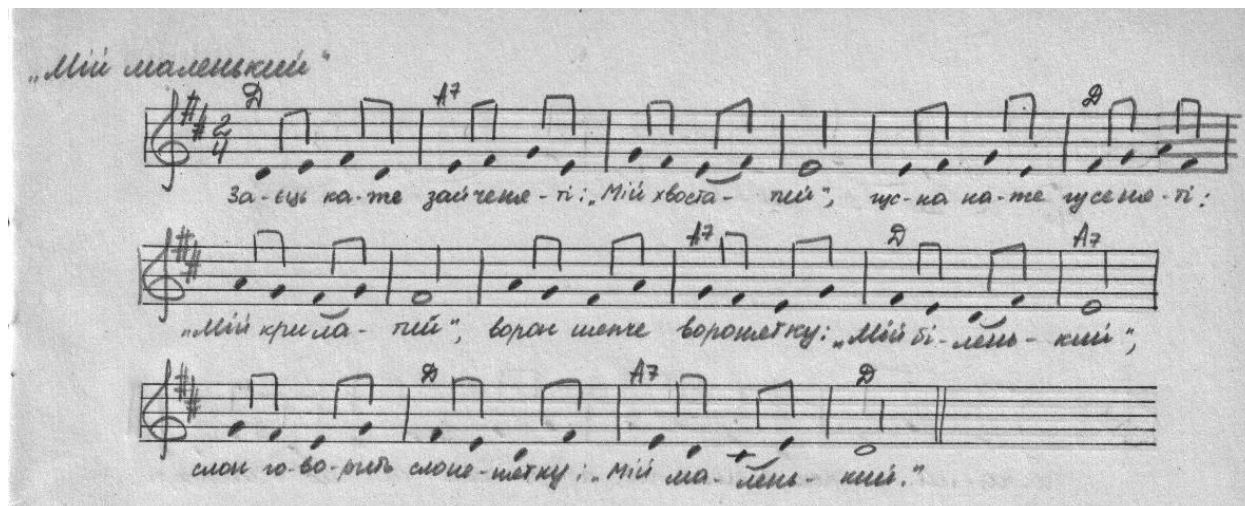 „Мій маленький"
D A7 D
2/4
За-єць ка-же зайченя-ті: „Мій хвоста-тий", гус-ка ка-же гусеня-ті:
A7 D A7
„Мій крила-тий", ворон шепче воронятку: „Мій бі-лень-кий",
D A7 D
слон го-во-рить слоне-нятку: „Мій ма-лень-кий."